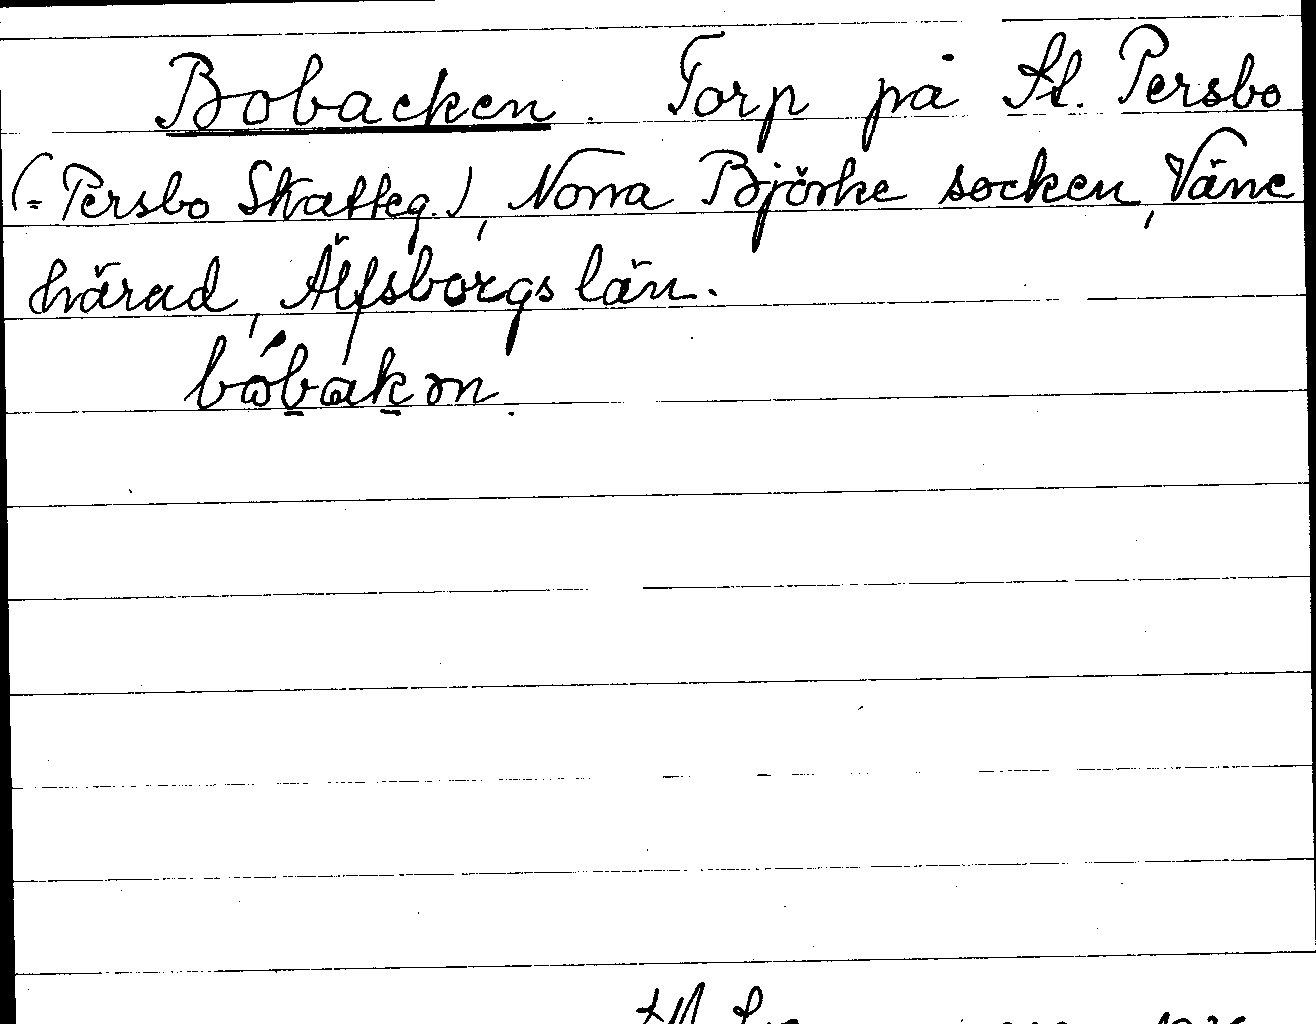 Bobacken. Torp på St. Persbo
(= Persbo Skatteg.), Norra Björke socken, Väne
härad, Älfsborgs län.
bóbakən.